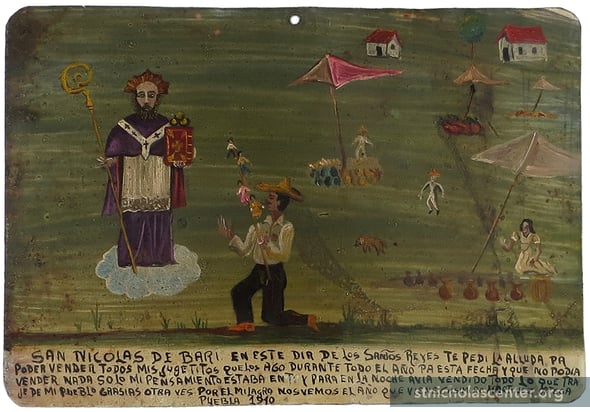 SAN NICOLAS DE BARI EN ESTE DIA DE LOS SANTOS REYES TE PEDI LA ALLUDA PA
PODER VENDER TODOS MIS JUGETITOS QUE LOS AGO DURANTE TODO EL AÑO PA ESTA FECHA Y QUE NO PODIA
VENDER NADA SOLO MI PENSAMIENTO ESTABA EN TI Y PARA EN LA NOCHE AVIA VENDIDO TODO LO QUE TRA
JE DE MI PUEBLO GRASIAS OTRA VES POR EL MILAGRO NOS VEMOS EL AÑO QUE
PUEBLA 1910
stnicholascenter.org